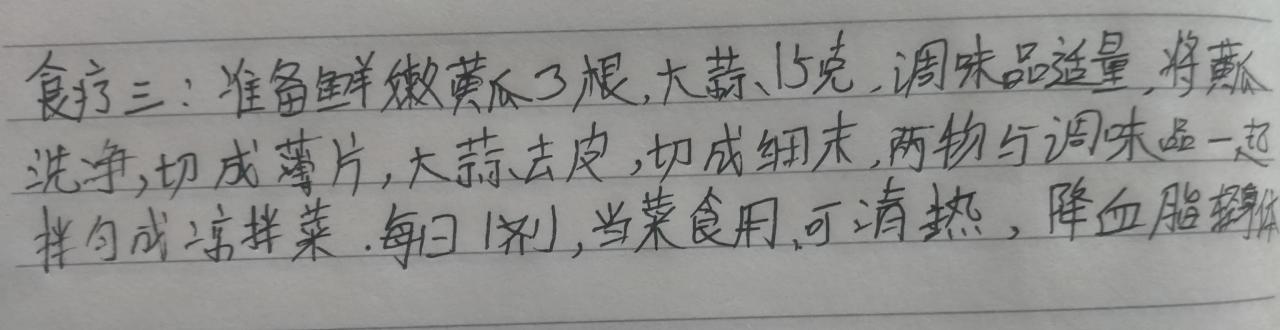 食疗三：准备鲜嫩黄瓜3根，大蒜15克，调味品适量，将黄瓜
洗净，切成薄片，大蒜去皮，切成细末，两物与调味品一起
拌匀成凉拌菜．每日1剂，当菜食用，可清热，降血脂轻身体